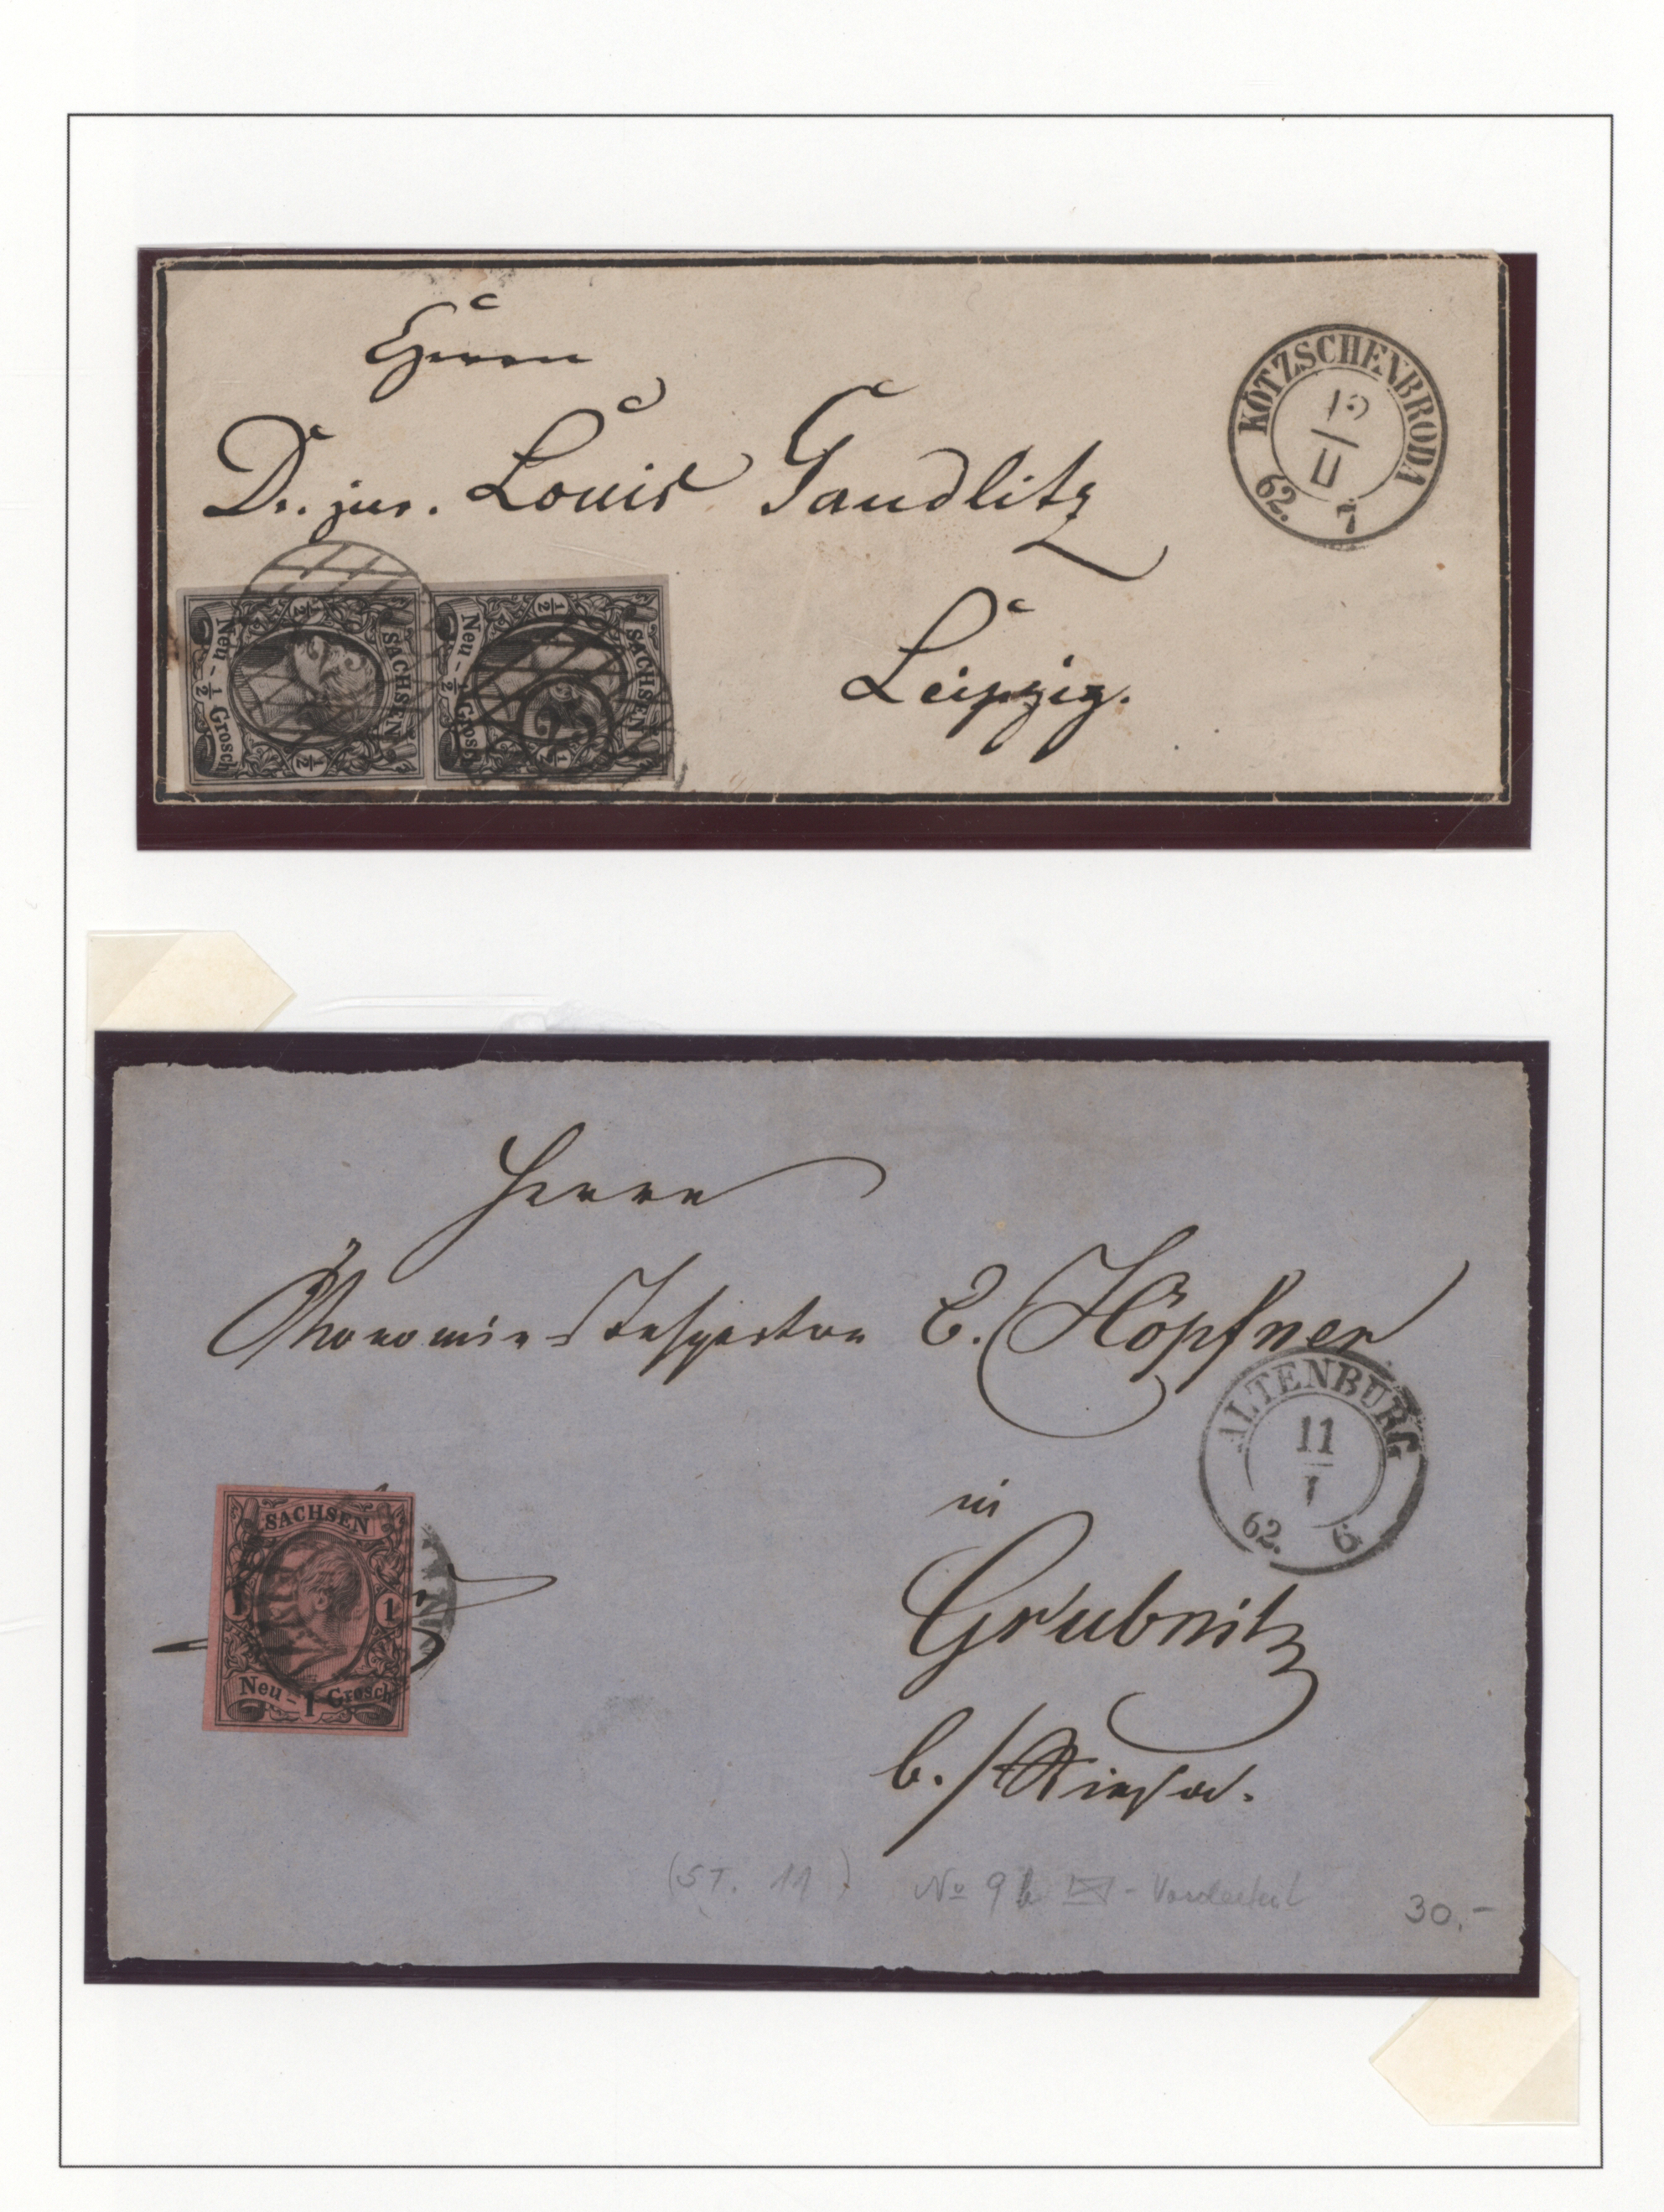 Herrn
Dr. jur. Louis Gaudlitz
Leipzig.
KÖTZSCHENBRODA
12
II
62. 7
SACHSEN
Neu-½ Grosch
½
½
SACHSEN
Neu-½ Grosch
½
½
25
Herrn
Ökonomie-Inspector E. Höpfner
ALTENBURG
11
I
62. 6
in
Grubnitz
b./Riesa.
SACHSEN
1
1
Neu-1 Grosch
(ST. 11)
No 9 b - Vorderteil
30.-